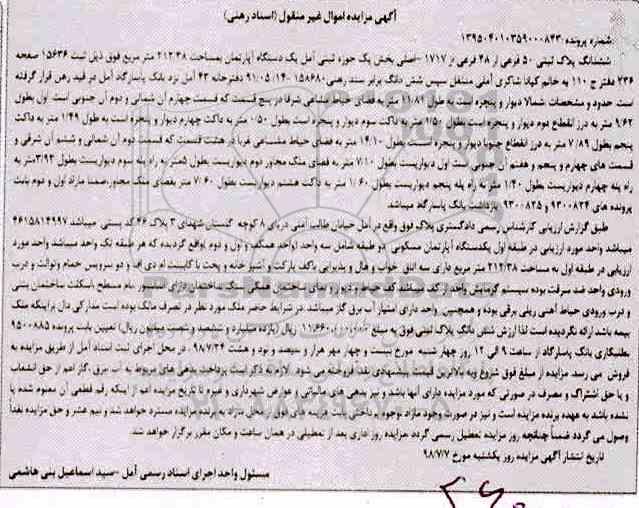 آگهی مزایده اموال غیر منقول (اسناد رهنی)
شماره پرونده: ۱۳۹۵۰۴۰۱۰۳۵۹۰۰۰۸۴۳
ششدانگ پلاک ثبتی ۵۰ فرعی از ۳۸ فرعی از ۱۷۱۷ -اصلی بخش یک حوزه ثبتی آمل یک دستگاه آپارتمان بمساحت ۲۱۲/۳۸ متر مربع فوق ذیل ثبت ۱۵۶۳۶ صفحه
۲۳۶ دفتر ج ۱۱۰ به خانم کیانا شاکری آملی منتقل سپس شش دانگ برابر سند رهنی ۱۵۸۶۸۰-۹۱/۰۵/۱۴ دفترخانه ۴۳ آمل نزد بانک پاسارگاد آمل در قید رهن قرار گرفته
است حدود و مشخصات شمالا دیوار و پنجره است به طول ۱۱/۸۱ متر به فضای حیاط مشاعی شرقا در پنج قسمت که قسمت چهارم آن شمالی و دوم آن جنوبی است اول بطول
۹/۶۲ متر به درز انقطاع دوم دیوار و پنجره است بطول ۱/۵۰ متر به داکت سوم دیوار و پنجره است به طول ۰/۵۰ متر به داکت چهارم دیوار و پنجره است به طول ۱/۴۹ متر به داکت
پنجم بطول ۷/۸۹ متر به درز انقطاع جنوبا دیوار و پنجره است بطول ۱۴/۱۰ متر به فضای حیاط مشاعی غربا در هشت قسمت که قسمت دوم آن شمالی و ششم آن شرقی و
قسمت های چهارم و پنجم و هفتم آن جنوبی است اول دیواریست بطول ۷/۱۰ متر به فضای ملک مجاور دوم دیواریست بطول متر به راه پله سوم دیواریست بطول ۳/۹۳ متر به
راه پله چهارم دیواریست بطول ۱/۴۰ متر به راه پله پنجم دیواریست بطول ۱/۶۰ متر به داکت هشتم دیواریست بطول ۷/۶۰ متر بفضای ملک مجاور ضمنا مازاد اول و دوم بابت
پرونده های ۹۳۰۰۸۳۴ و ۹۳۰۰۸۳۵ بازداشت بانک پاسارگاد میباشد.
طبق گزارش ارزیابی کارشناس رسمی دادگستری پلاک فوق واقع در آمل خیابان طالب آملی دریای ۸ کوچه گلستان شهدای ۳ پلاک ۴۶ کد پستی ۴۶۱۵۸۱۴۹۹۷ میباشد
میباشد واحد مورد ارزیابی در طبقه اول یکدستگاه آپارتمان مسکونی دو طبقه شامل سه واحد (واحد همکف و اول و دوم )واقع گردیده که هر طبقه تک واحد میباشد واحد مورد
ارزیابی در طبقه اول به مساحت ۲۱۲/۳۸ متر مربع دارای سه اتاق خواب و هال و پذیرایی باکف پارکت و آشپزخانه و پخت با کابینت ام دی اف و دو سرویس حمام وتوالت و درب
ورودی واحد ضد سرقت بوده سیستم گرمایش واحد پکیج میباشد کف حیاط و دیوار و نمای ساختمان همگی سنگ ساختمان دارای آسانسور تمام مسطح ،اسکلت ساختمان بتنی
و درب ورودی حیاط آهنی ریلی برقی بوده و همچنین واحد دارای امتیاز آب برق گاز میباشد. در شرایط حاضر ملک مورد نظر در تصرف مالک بوده است مدارکی دال براینکه ملک
بیمه باشد ارائه نگردیده است لذا ارزش شش دانگ پلاک ثبتی فوق به مبلغ ۱۱/۶۶۰/۰۰۰/۰۰۰ ریال (یازده میلیارد و ششصد و شصت میلیون ریال) تعیین بابت پرونده ۹۵۰۰۸۸۵
بطلبکاری بانک پاسارگاد از ساعت ۹ الی ۱۲ روز چهار شنبه مورخ بیست و چهار مهر هزار و سیصد و نود و هشت ۹۸/۷/۲۴ . در محل اجرای ثبت اسناد آمل از طریق مزایده به
فروش می رسد. مزایده از مبلغ فوق شروع وبه بالاترین قیمت پیشنهادی نقدا فروخته می شود . لازم به ذکر است پرداخت بدهی های مربوط به آب ،برق ،گاز اعم از حق انشعاب
و یا حق اشتراک و مصرف در صورتی که مورد مزایده دارای آنها باشد و نیز بدهی های مالیاتی و عوارض شهرداری و غیره تا تاریخ مزایده اعم از اینکه رقم قطعی آن معلوم شده یا
نشده باشد به عهده برنده مزایده است و نیز در صورت وجود مازاد ،وجوه پرداختی بابت هزینه های فوق از محل مازاد به برنده مزایده مسترد خواهد شد و نیم عشر و حق مزایده نقدا
وصول می گردد ضمناً چنانچه روز مزایده تعطیل رسمی گردد .مزایده روز اداری بعد از تعطیلی در همان ساعت و مکان مقرر برگزار خواهد شد
تاریخ انتشار آگهی مزایده روز یکشنبه مورخ ۹۸/۷/۷
مسئول واحد اجرای اسناد رسمی آمل -سید اسماعیل بنی هاشمی